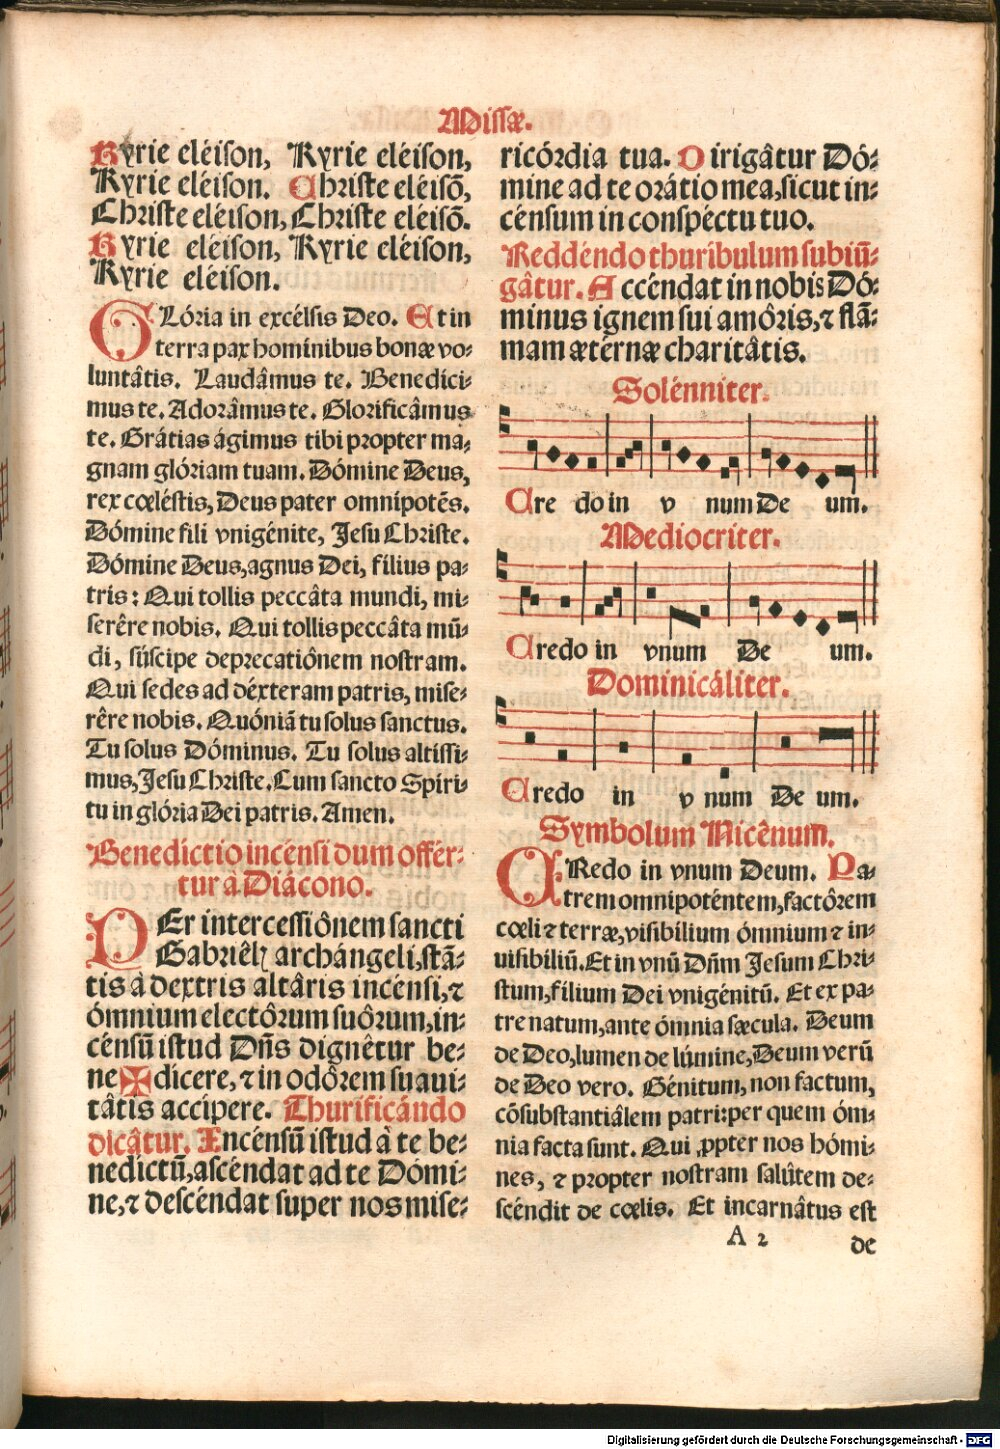 Missæ.
Kyrie eléison, Kyrie eléison,
Kyrie eléison. Christe eléisõ,
Christe eléison, Christe eléisõ.
Kyrie eléison, Kyrie eléison,
Kyrie eléison.
GLória in excélsis Deo. Et in
terra pax hominibus bonæ vo-
luntâtis. Laudâmus te. Benedíci-
mus te. Adorâmus te. Glorificâmus
te. Grátias ágimus tibi propter ma-
gnam glóriam tuam. Dómine Deus,
rex cœléstis, Deus pater omnípotẽs.
Dómine fili vnigénite, Jesu Christe.
Dómine Deus, agnus Dei, filius pa-
tris: Qui tollis peccâta mundi, mi-
serêre nobis. Qui tollis peccâta mũ-
di, súscipe deprecatiônem nostram.
Qui sedes ad déxteram patris, mise-
rêre nobis. Quóniã tu solus sanctus.
Tu solus Dóminus. Tu solus altíssi-
mus, Jesu Christe. Cum sancto Spíri-
tu in glória Dei patris. Amen.
Benedictio incénsi dum offér-
tur à Diácono.
PEr intercessiônem sancti
Gabriêlꝭ archángeli, stã-
tis à dextris altâris incénsi, ⁊
ómnium electôrum suôrum, in-
cénsũ istud Dñs dignêtur be-
ne✠dícere, ⁊ in odôrem suaui-
tâtis accípere. Thurificándo
dicâtur. Incénsũ istud à te be-
nedíctũ, ascéndat ad te Dómi-
ne, ⁊ descéndat super nos mise-
ricórdia tua. Dirigâtur Dó-
mine ad te orátio mea, sicut in-
cénsum in conspéctu tuo.
Reddéndo thuríbulum subiũ-
gâtur. Accéndat in nobis Dó-
minus ignem sui amôris, ⁊ flã-
mam ætérnæ charitâtis.
Solénniter.
Cre do in v num De um.
Mediocríter.
Credo in vnum De um.
Dominicáliter.
Credo in v num De um.
Symbolum Nicênum.
CRedo in vnum Deum. Pa-
trem omnipoténtem, factôrem
cœli ⁊ terræ, visibílium ómnium ⁊ in-
uisibíliũ. Et in vnũ Dñm Jesum Chri-
stum, fílium Dei vnigénitũ. Et ex pa-
tre natum, ante ómnia sæcula. Deum
de Deo, lumen de lúmine, Deum verũ
de Deo vero. Génitum, non factum,
cõsubstantiâlem patri: per quem óm-
nia facta sunt. Qui ꝓpter nos hómi-
nes, ⁊ propter nostram salûtem de-
scéndit de cœlis. Et incarnâtus est
A 2
de
Digitalisierung gefördert durch die Deutsche Forschungsgemeinschaft - DFG